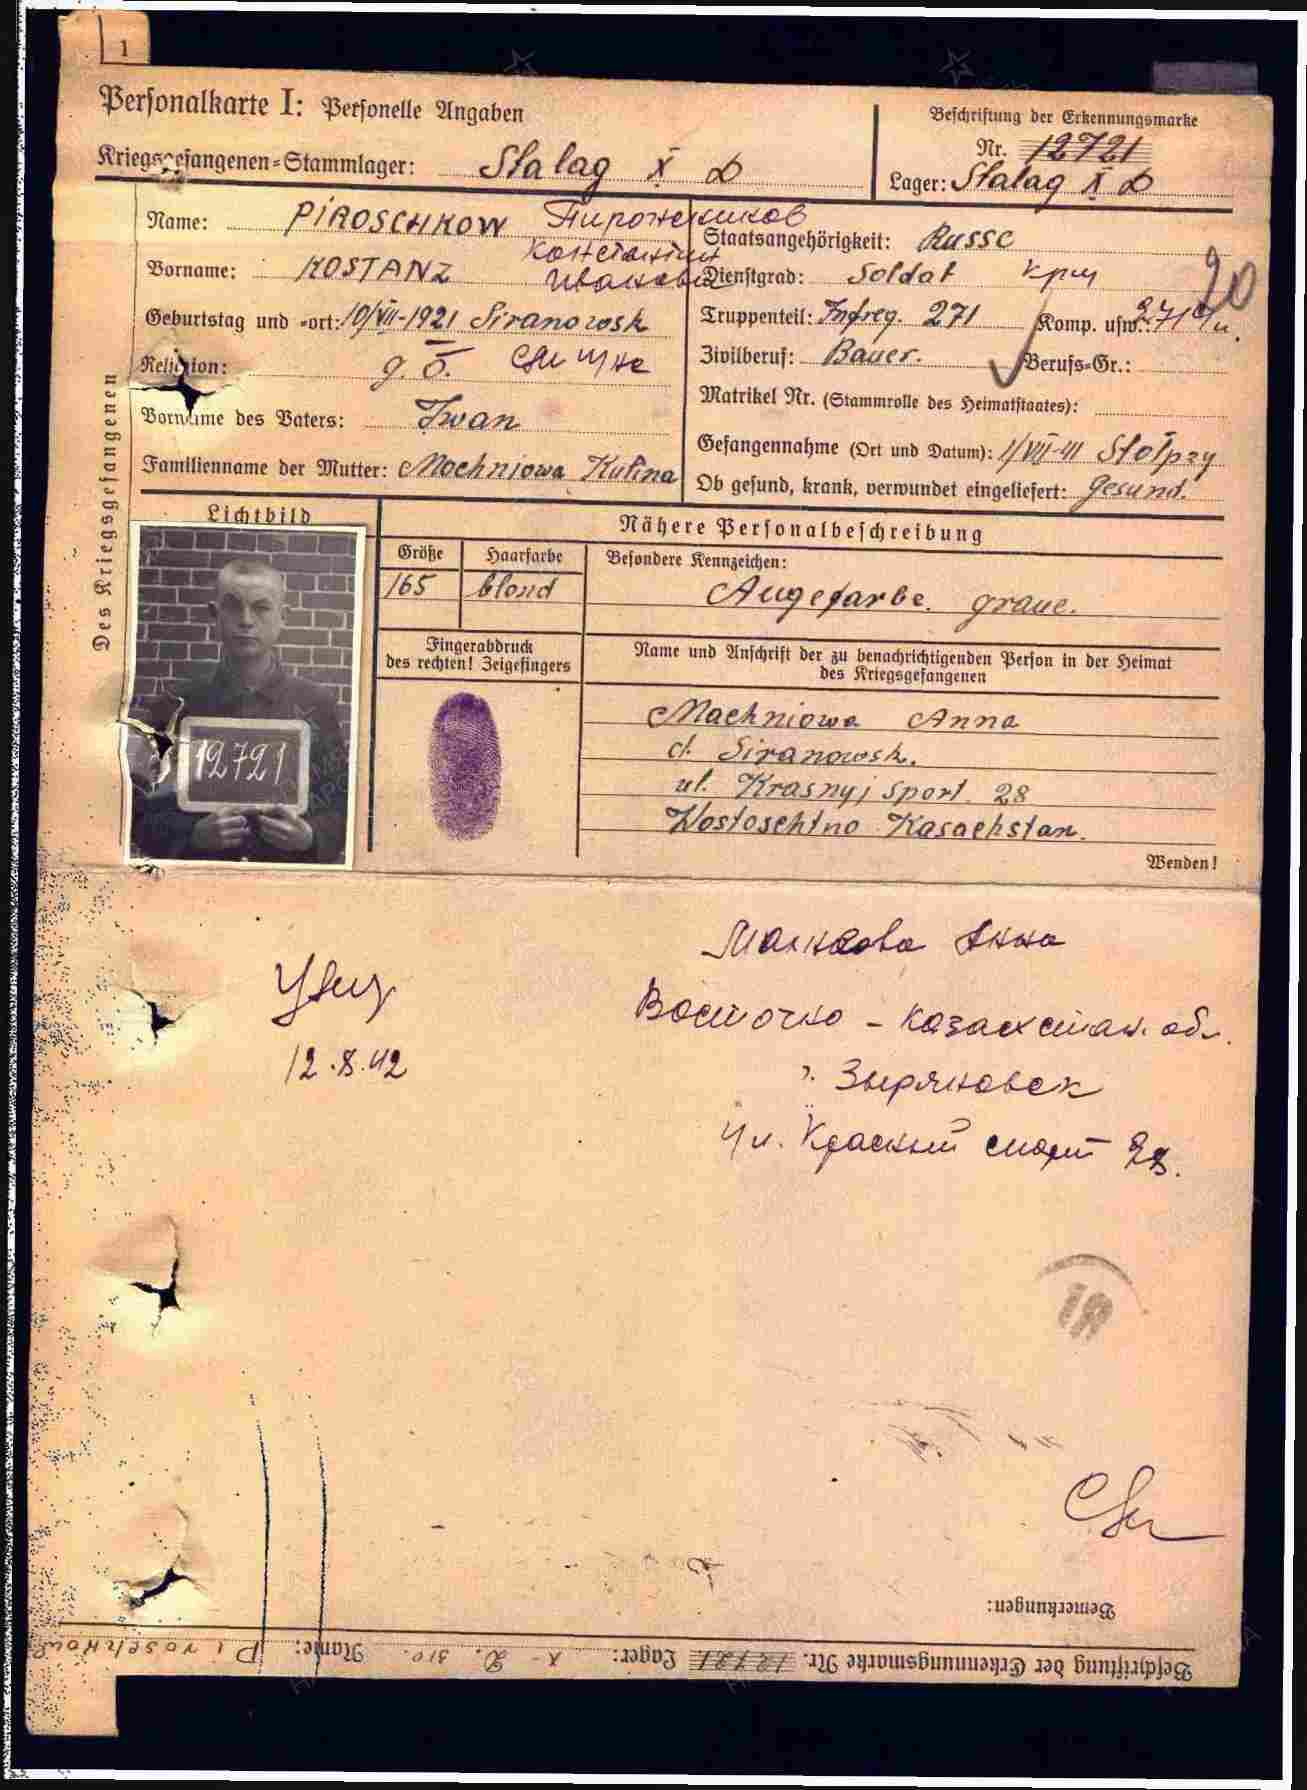 1
Personalkarte I: Personelle Angaben
Beschriftung der Erkennungsmarke
Nr. 12721
Kriegsgefangenen=Stammlager: Stalag X D
Lager: Stalag X D
Des Kriegsgefangenen
Name: PIROSCHKOW
Staatsangehörigkeit: Russe
Vorname: KOSTANZ Константин
Иванович
Dienstgrad: Soldat кр-ц
20
Geburtstag und =ort: 10/VII-1921 Siranowsk
Truppenteil: Infreg. 271 Komp. usw.: 271
Religion: g. o.
Zivilberuf: Bauer. Berufs=Gr.:
Matrikel Nr. (Stammrolle des Heimatstaates):
Vorname des Vaters: Iwan
Gefangennahme (Ort und Datum): 1/VII-41 Stolpzy
Familienname der Mutter: Mochniowa Kulina
Ob gesund, krank, verwundet eingeliefert: Gesund.
Lichtbild
Nähere Personalbeschreibung
Größe Haarfarbe Besondere Kennzeichen:
165 blond Augefarbe. graue.
Fingerabdruck
des rechten! Zeigefingers
Name und Anschrift der zu benachrichtigenden Person in der Heimat
des Kriegsgefangenen
12721
Machniowa Anna
d. Siranowsk.
ul. Krasnyj sport 28
Wostoschtno Kasachstan.
Wenden!
Анна
Восточно - казахстан. обл.
г. Зыряновск
ул. Красный спорт 28.
12.8.42
Bemerkungen:
Beschriftung der Erkennungsmarke Nr. 12721 Lager: X D. 310. Name: Piroschkow